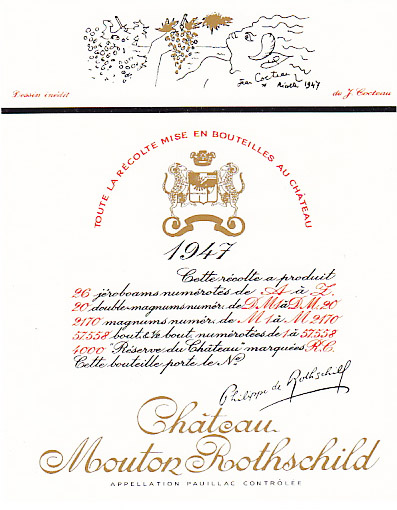 Jean Cocteau
* Noël 1947
Dessin inédit de J. Cocteau
TOUTE LA RÉCOLTE MISE EN BOUTEILLES AU CHÂTEAU
1947
Cette récolte a produit
26 jéroboams numérotés de A à Z
20 double-magnums numér. de D.M.1 à D.M.20
2170 magnums numér. de M 1 à M 2170
57558 bout. & ½ bout. numérotées de 1 à 57558
4000 "Réserve du Château" marquées R.C.
Cette bouteille porte le Nº
Philippe de Rothschild
Château
Mouton Rothschild
APPELLATION PAUILLAC CONTRÔLÉE